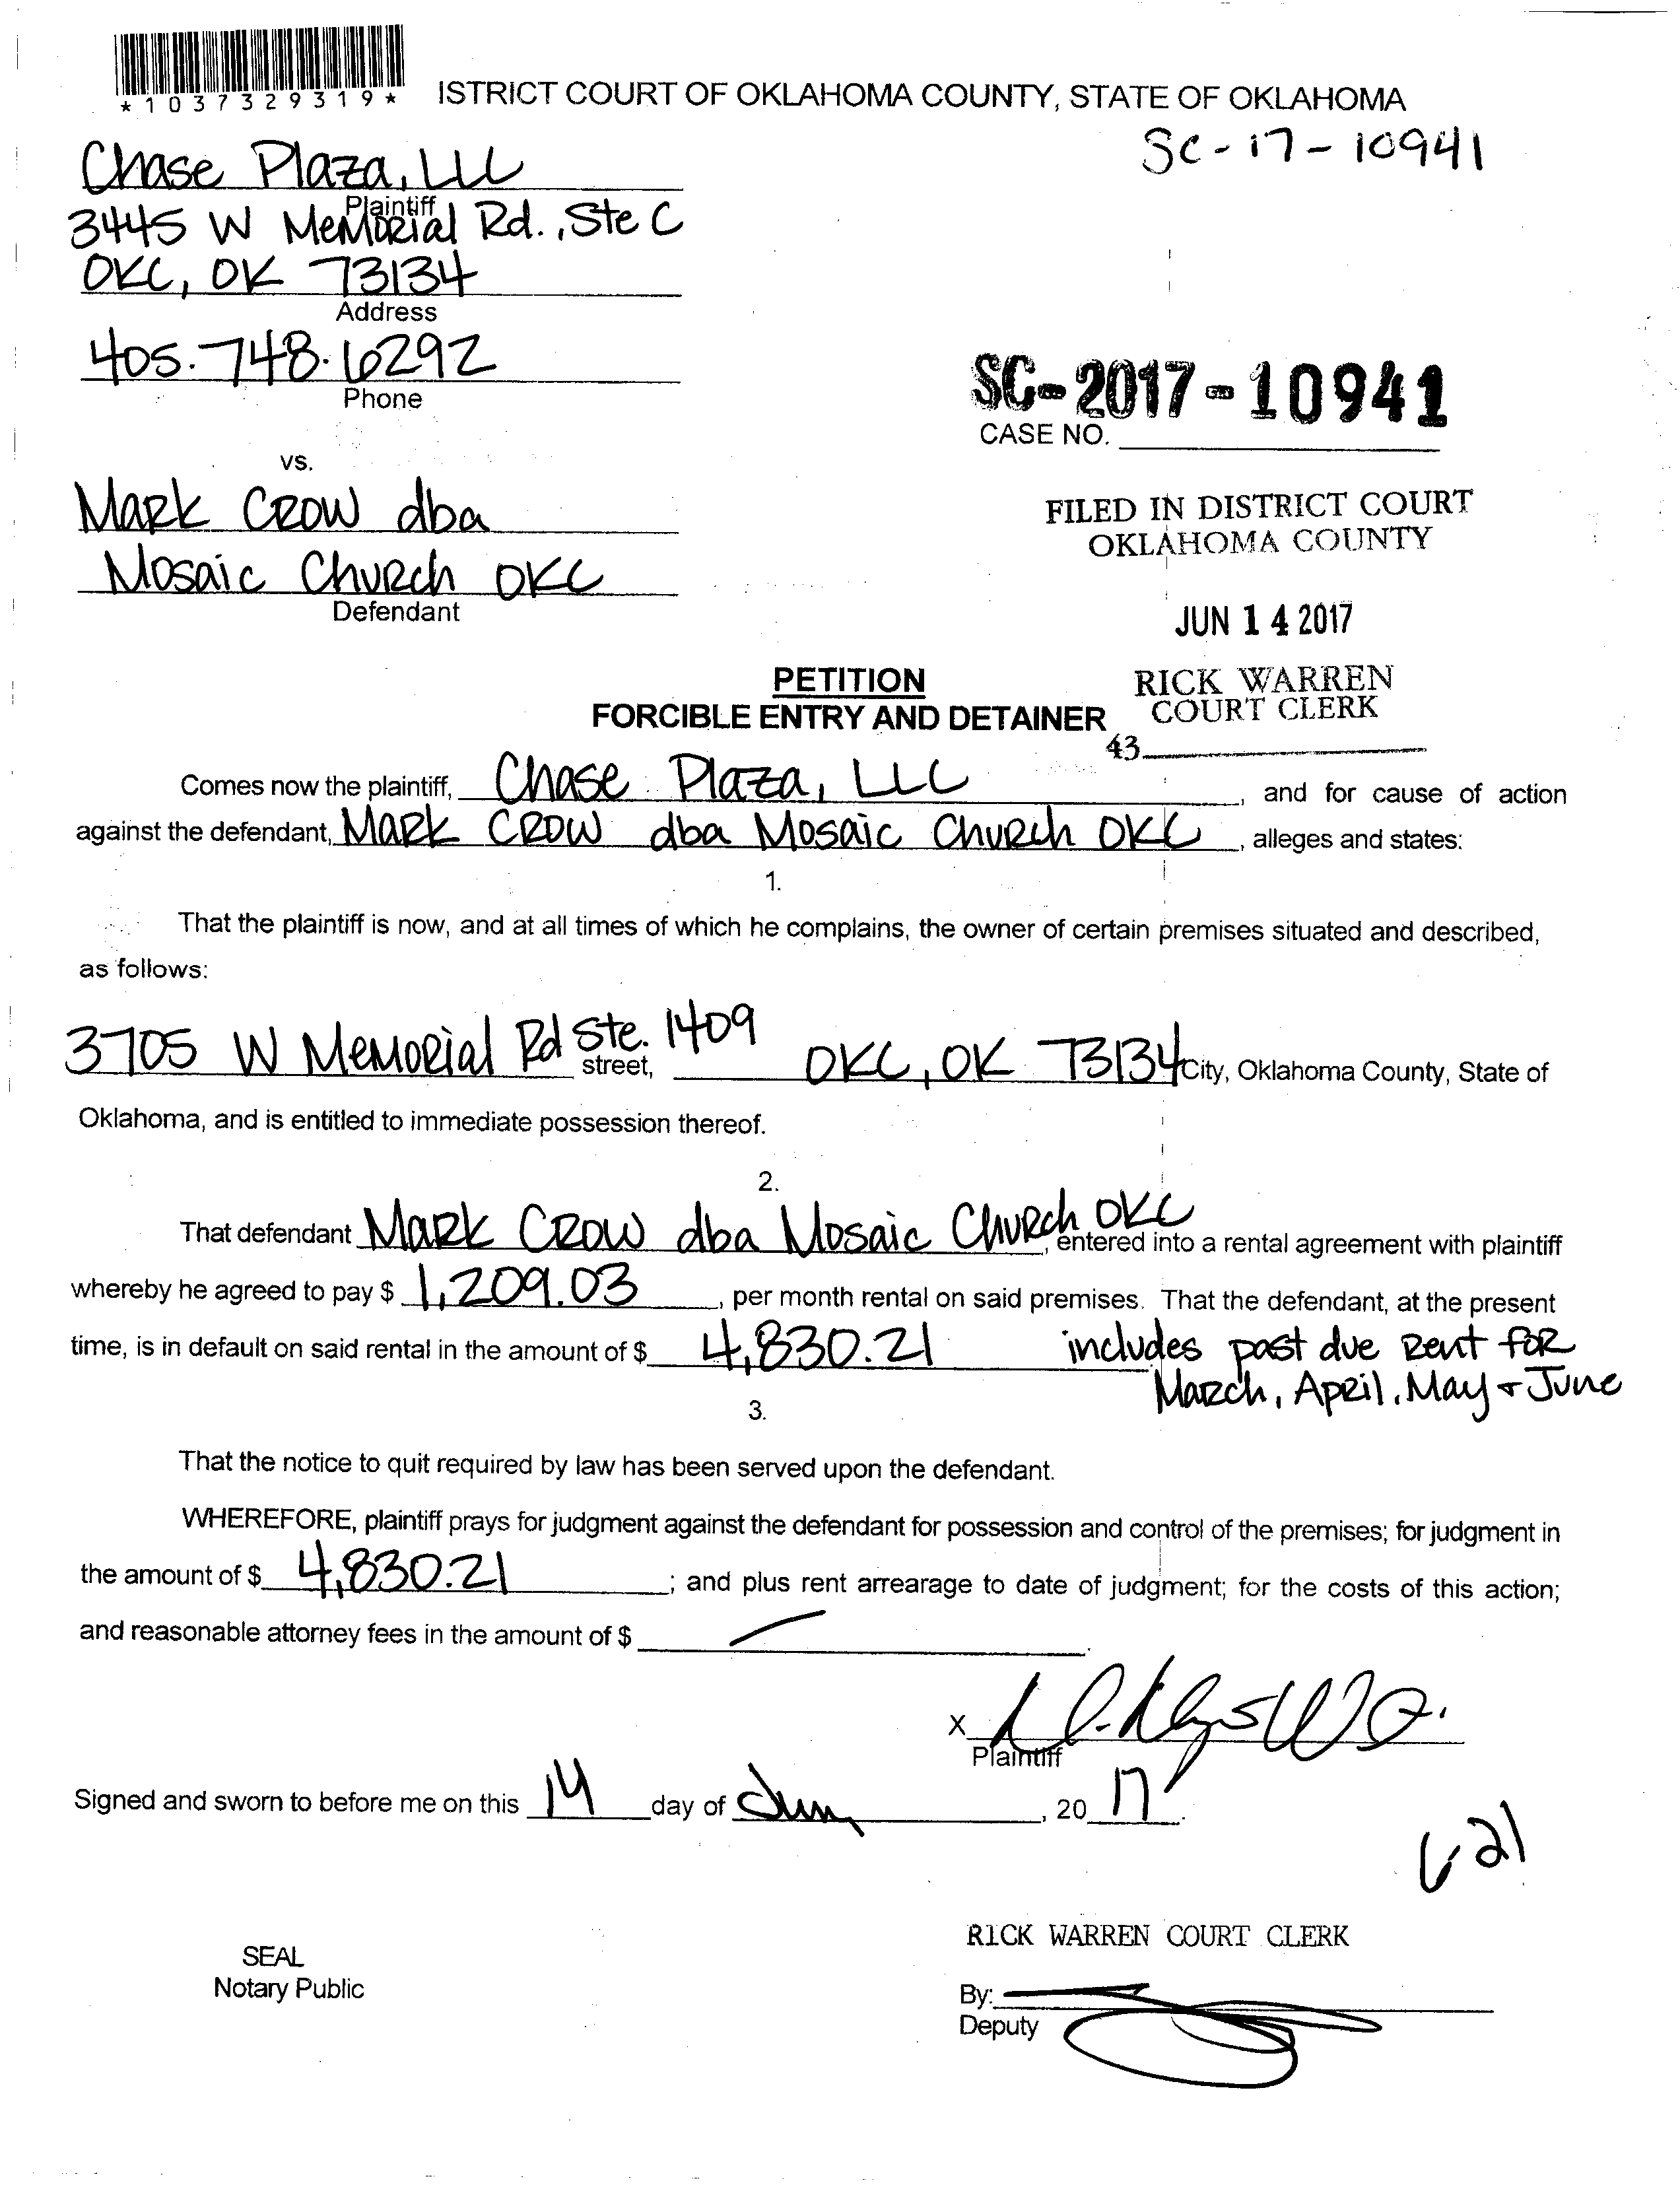 *1037329319*
ISTRICT COURT OF OKLAHOMA COUNTY, STATE OF OKLAHOMA
SC-17-10941
Chase Plaza, LLC
Plaintiff
3445 W Memorial Rd., Ste C
OKC, OK 73134
Address
405.748.6292
Phone
SC-2017-10941
CASE NO.
vs.
Mark Crow dba
Mosaic Church OKC
Defendant
FILED IN DISTRICT COURT
OKLAHOMA COUNTY
JUN 14 2017
RICK WARREN
COURT CLERK
43
PETITION
FORCIBLE ENTRY AND DETAINER
Comes now the plaintiff, Chase Plaza, LLC, and for cause of action
against the defendant, Mark Crow dba Mosaic Church OKC, alleges and states:
1.
That the plaintiff is now, and at all times of which he complains, the owner of certain premises situated and described,
as follows:
3705 W Memorial Rd Ste. 1409 street, OKC, OK 73134 City, Oklahoma County, State of
Oklahoma, and is entitled to immediate possession thereof.
2.
That defendant Mark Crow dba Mosaic Church OKC, entered into a rental agreement with plaintiff
whereby he agreed to pay $ 1,209.03, per month rental on said premises. That the defendant, at the present
time, is in default on said rental in the amount of $ 4,830.21 includes past due rent for
March, April, May + June
3.
That the notice to quit required by law has been served upon the defendant.
WHEREFORE, plaintiff prays for judgment against the defendant for possession and control of the premises; for judgment in
the amount of $ 4,830.21; and plus rent arrearage to date of judgment; for the costs of this action;
and reasonable attorney fees in the amount of $
X
Plaintiff
Signed and sworn to before me on this 14 day of June, 20 17.
6-21
RICK WARREN COURT CLERK
SEAL
Notary Public
By:
Deputy